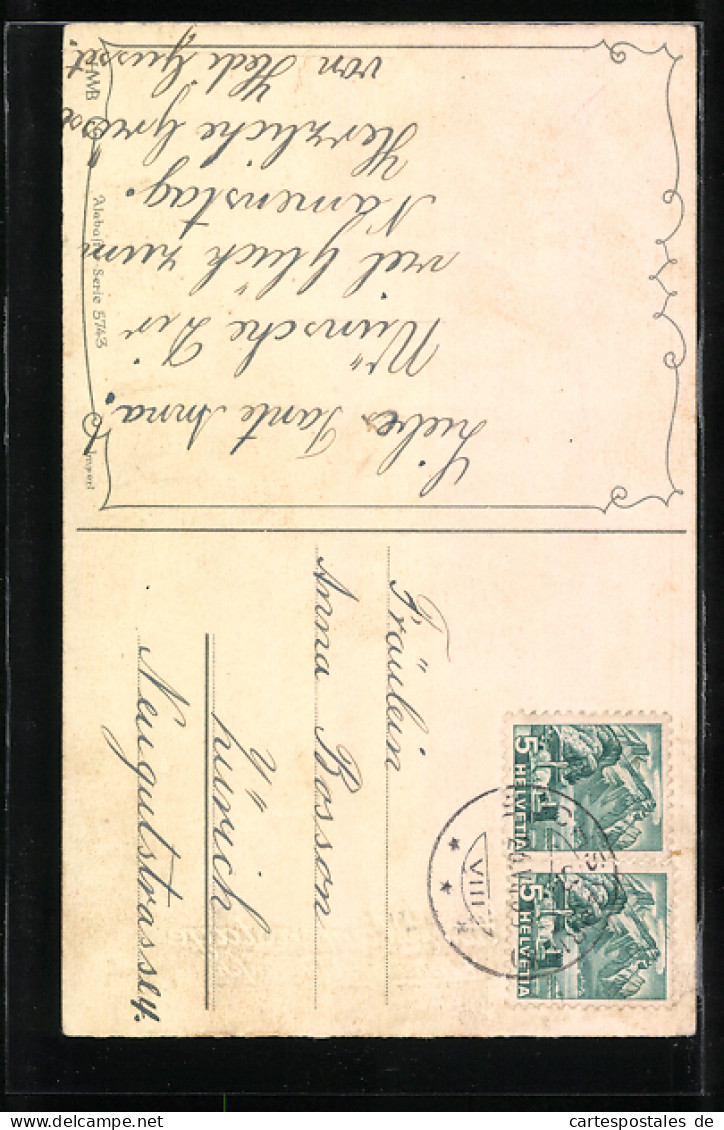 Liebe Tante Anna.
Wünsche Dir
viel Glück zum
Namenstag.
Herzliche Grüsse
von Hedi
HWB
Serie 5743
Import
Fräulein
Anna Bosson
Zürich
Neugutstrasse 4.
5 HELVETIA
5 HELVETIA
VIII
cartespostales.de